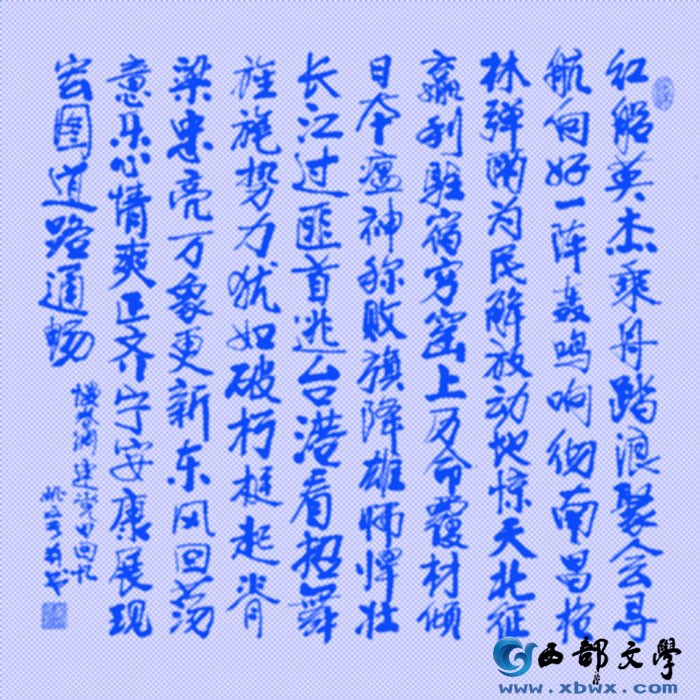 红船英杰乘舟踏浪聚会寻
航向好一阵轰鸣响彻南昌枪
林弹雨为民解放动地惊天北征
赢利驻宿穷窑上历命覆材倾
日本瘟神称败旗降雄师悍壮
长江过匪首逃台港看招舞
旌旄势力犹如破朽梃起脊
梁忠亮万象更新东风回荡
意乐心情爽正齐宁安康展现
宏图道路通畅
建党
回忆
西部文学
www.xbwx.com